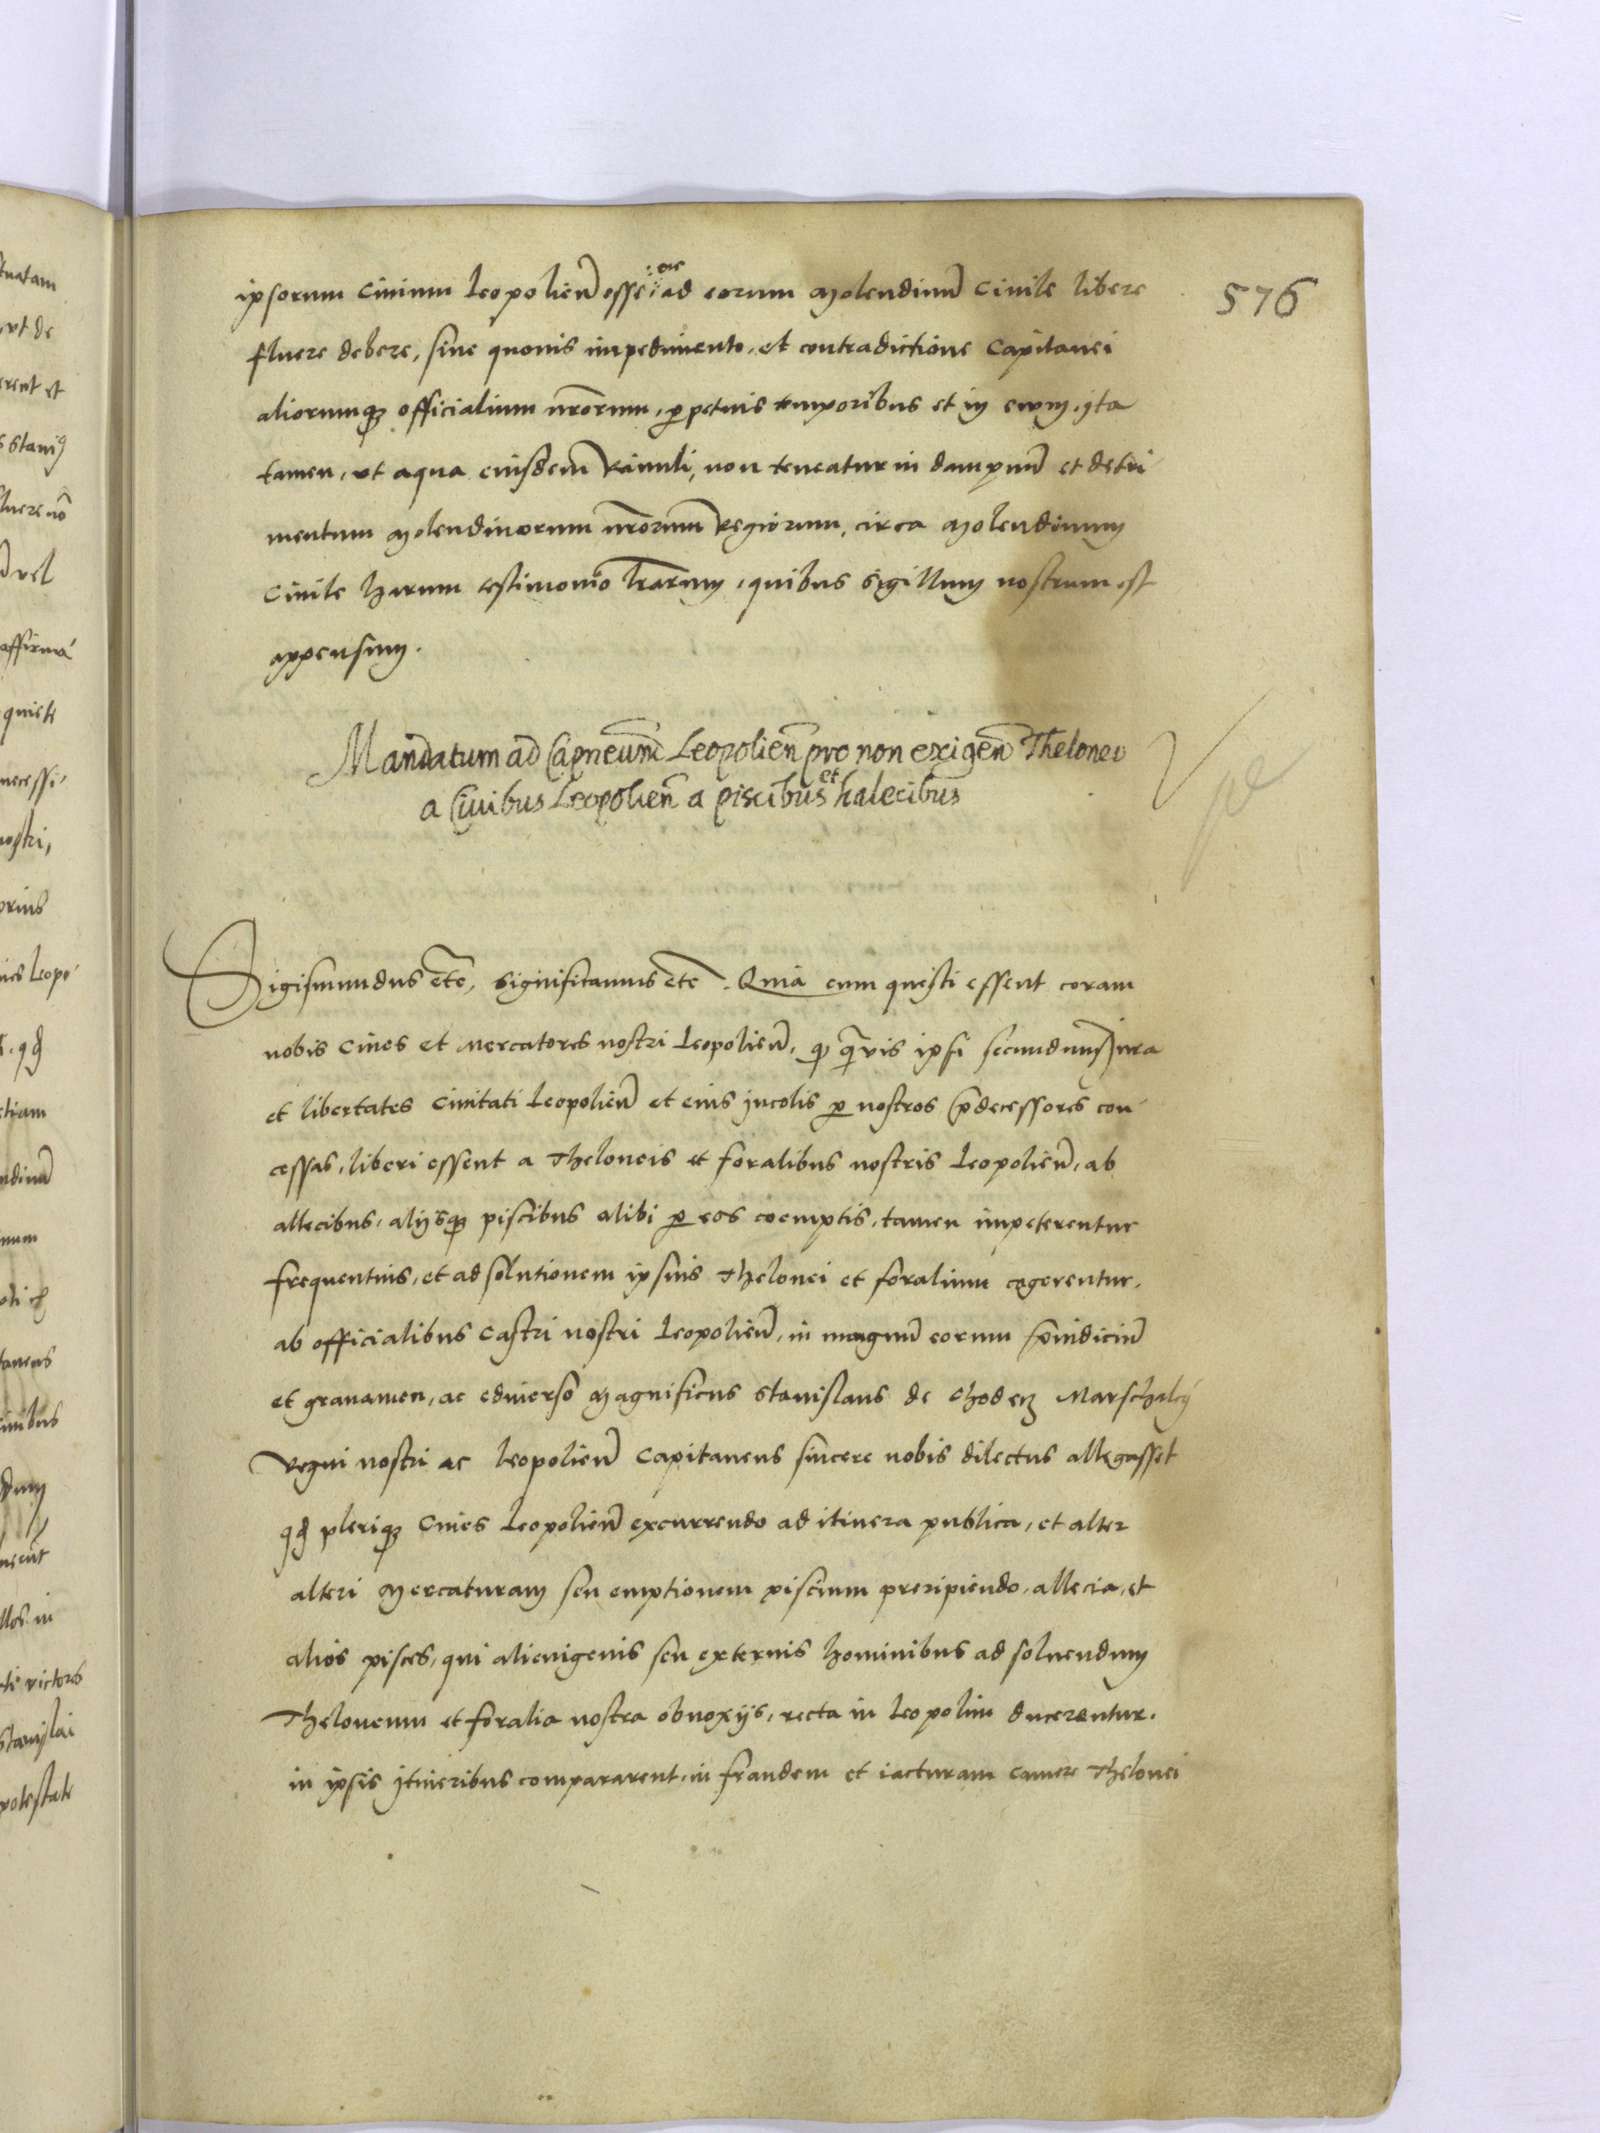 576
ipsorum Ciuium Leopolien̄ esse ac ad eorum Molendinū Ciuile libere
fluere debere, sine quouis impedimento, et contradictione Capitanei
aliorumq; officialium nr̄orum, ꝑpetuis temporibus et in euum, ita
tamen, vt aqua eiusdem Riuuli, non teneatur in dampnū et detri
mentum Molendinorum nr̄orum Regiorum, circa Molendinum
Ciuile harum testimonio lr̄arum, quibus Sigillum nostrum est
appensum.
Mandatum ad Capneum Leopolien̄ pro non exigen̄ Theloneo
a Ciuibus Leopolien̄ a piscibus et halecibus
Sigismundus etc̄, Significamus etc̄. Quia cum questi essent coram
nobis Ciues et Mercatores nostri Leopolien̄, ꝙ q̄uis ipsi secundum Jura
et libertates Ciuitati Leopolien̄ et eius incolis ꝑ nostros p̄decessores con
cessas, liberi essent a Theloneis et foralibus nostris Leopolien̄, ab
allecibus, alijsq; piscibus alibi ꝑ eos coemptis, tamen impeterentur
frequentius, et ad solutionem ipsius Thelonei et foralium cogerentur,
ab officialibus Castri nostri Leopolien̄, in magnū eorum p̄iudiciū
et grauamen, ac eduerso Magnificus Stanislaus de Chodecz Marschalcꝰ
Regni nostri ac Leopolien̄ Capitaneus sincere nobis dilectus allegasset
qđ pleriq; Ciues Leopolien̄ excurrendo ad itinera publica, et alter
alteri Mercaturam seu emptionem piscium preripiendo, allecia, et
alios pisces, qui alienigenis seu externis hominibus ad soluendum
Theloneum et foralia nostra obnoxijs, recta in Leopolim ducerentur,
in ipsis itineribus compararent, in fraudem et iacturam camere Thelonei